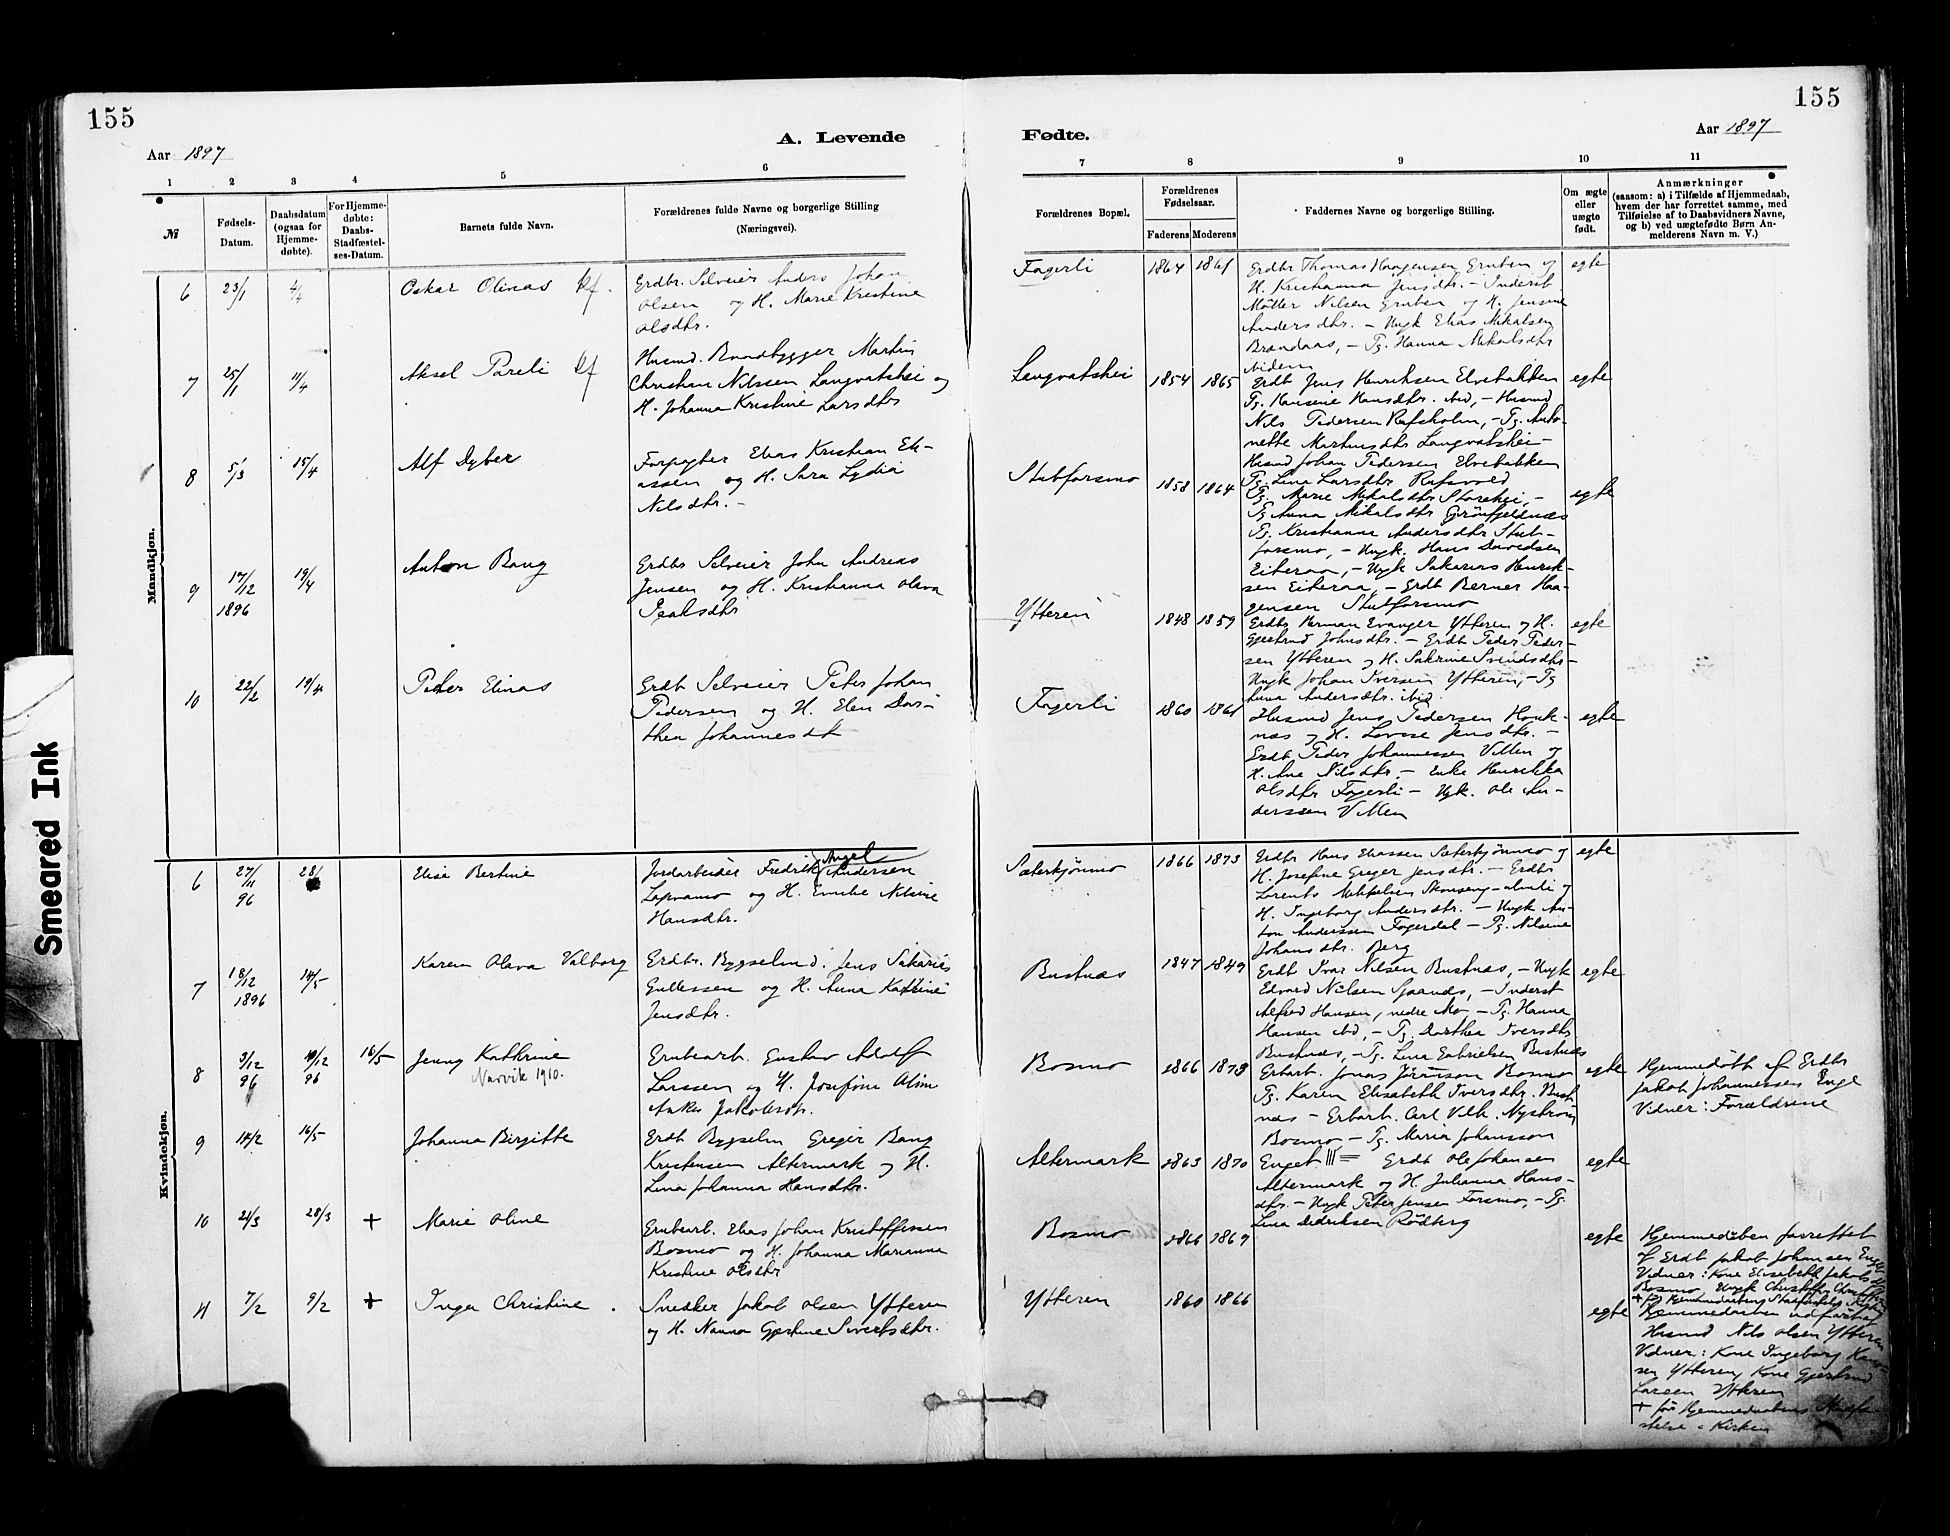 155
155
A. Levende
Fødte.
Aar 1897
Aar 1897
1 2 3 4 5 6 7 8 9 10 11
№
Fødsels-
Datum.
Daabsdatum
(ogsaa for
Hjemme-
døbte).
For Hjemme-
døbte:
Daabs-
Stadfæstel-
ses-Datum.
Barnets fulde Navn.
Forældrenes fulde Navne og borgerlige Stilling
(Næringsvei).
Forældrenes Bopæl.
Forældrenes
Fødselsaar.
Faderens Moderens
Faddernes Navne og borgerlige Stilling.
Om ægte
eller
uægte
født.
Anmærkninger
(saasom: a) i Tilfælde af Hjemmedaab,
hvem der har forrettet samme, med
Tilføielse af to Daabsvidners Navne,
og b) ved uægtefødte Børn An-
melderens Navn m. V.)
Mandkjøn.
6 23/1 Oskar Olinas
Erdbr. Selveier Anders Johan
Olsen og H. Marie Kristine
Olsdtr.
Fagerli 1864 1861
Erdbr Thomas Haagensen Gruben og
H. Kristianna Jensdtr. - Inderst
Møller Nilsen Gruben og H. Jensine
Andersdtr. - Ungk Elias Mikalsen
Brandaas, - Pg. Hanna Mikalsdtr
ibidem
egte
7 25/1 11/4 Aksel Pareli
Husmd. Bundbygger Martin
Christian Nilssen Langvatshei og
H. Johanna Kristine Larsdtr
Langvatshei 1854 1865
Erdb Jens Henriksen Elvebakken
Pg. Hansine Hansdtr. ibid, - Husmd
Nils Pedersen Rafsholm, - Pg. Anto-
nette Martinsdtr Langvatshei -
Husmd Johan Pedersen Elvebakken
Pg. Lina Larsdtr Rafsvold
egte
8 5/3 15/4 Alf Dyber
Forpagter Elias Kristian Eli-
assen og H. Sara Lydia
Nilsdtr. -
Stubforsmo 1858 1864
Pg. Marie Mikalsdtr Storehei, -
Pg Anna Mikalsdtr Grønfjeldnæs
Pg. Kristianne Andersdtr Stub-
forsmo, - Ungk. Hans Davidsen
Eiteraa, - Ungk Sakarias Henrik-
sen Eiteraa, - Erdb Berner Haa-
gensen Stubforsmo
egte
9 17/12 1896 19/4 Anton Bang
Erdbr Selveier John Andreas
Jensen og H. Kristianna Olava
Ytteren 1848 1859
Erdbr Herman Evanger Ytteren og H.
Gjertrud Johnsdtr. - Erdb Peder Peder-
sen Ytteren og H. Sakrine Svendsdtr -
Ungk Johan Iversen Ytteren, - Pg
Anna Andersdtr. ibid.
egte
10 22/2 19/4 Peder Elinas
Erdb Selveier Peter Johan
Pedersen og H. Elen Dor-
thea Johannesdt
Fagerli 1860 1861
Husmd Jens Pedersen Hauk-
næs og H. Lovise Jensdtr. -
Erdb Peder Johannessen Villen og
H. Ane Nilsdtr. - Enke Henrikka
Olsdtr Fagerli - Ugk. Ole An-
derssen Villen
egte
Kvindekjøn.
6 27/11 96 28/ Elise Bertine
Jordarbeider Fredrik Angel Andersen
og H. Emilie Nilsine
Hansdtr.
Sæterkjønmo 1866 1873
Erdbr Hans Eliassen Sæterkjønmo og
H. Josefine Greger Jensdtr. - Erdbr
Lorents Mikkelsen
H. Ingeborg Andersdtr. - Ungk An-
ton Anderssen Fagerdal - Pg. Nilsine
Johansdtr. Berg
egte
7 18/12 1896 14/5 Karen Olava Valborg
Erdbr. Bygselmd. Jens Sakarias
Gullessen og H. Anna Kathrine
Jensdtr.
Bustnæs 1847 1849
Erdb Ivar Nilsen Bustnæs, - Ungk
Edvard Nilsen - Inderst
Alfred Hansen, nedre Mo, - Pg. Hanna
Hansen ibid, - Pg. Dorthea Iversdtr
Bustnæs, - Pg. Lina Gabrielsen Bustnæs
egte
8 3/12 96 10/12 96 16/5 Jenny Kathrine
Narvik 1910.
Grubearb. Gustav Adolf
Larssen og H. Josefine Alvine
Jakobsdtr.
Bosmo 1866 1873
Erbarb. Jonas Jönsson Bosmo
Pg. Karen Elisabeth Iversdtr. Bust-
næs - Erbarb. Carl Vilh. Nyström
Bosmo - Pg. Maria Johansson
egte
Hjemmedöbt af Erdbr
Jakob Johannessen Enge
Vidner: Forældrene
9 14/2 16/5 Johanna Birgitte
Erdb Bygselm Greger Bang
Kristensen Altermark og H.
Lina Johanna Hansdtr.
Altermark 1863 1870
Erdb Ole Johansen
Altermark og H. Julianna Hans-
dtr. - Ungk Peter Jensen Forsmo, - Pg.
Lina Didriksen Rödberg
egte
10 21/3 28/3 + Marie Oline
Grubearb. Elias Johan Kristoffersen
Bosmo og H. Johanna Marianna
Kristine Olsdtr
Bosmo 1866 1869
egte
Hjemmedåben forrettet
af Erdb Jakob Johansen Enge
Vidner: Kone Elisabeth Jakobsd
Bosmo Ungk Christoffer
11 7/2 9/2 + Inga Christine
Snedker Jakob Olsen Ytteren
og H. Nanna Gjertine Sivertsdtr.
Ytteren 1860 1866
egte
Hjemmedaaben udført af
Husmd Nils Olsen Ytteren
Vidner: Kone Ingeborg
Ytteren, Kone Gjertrud
Larsen Ytteren
+ før Hjemmedaabens Stadfæ-
stelse i Kirken
Smeared Ink